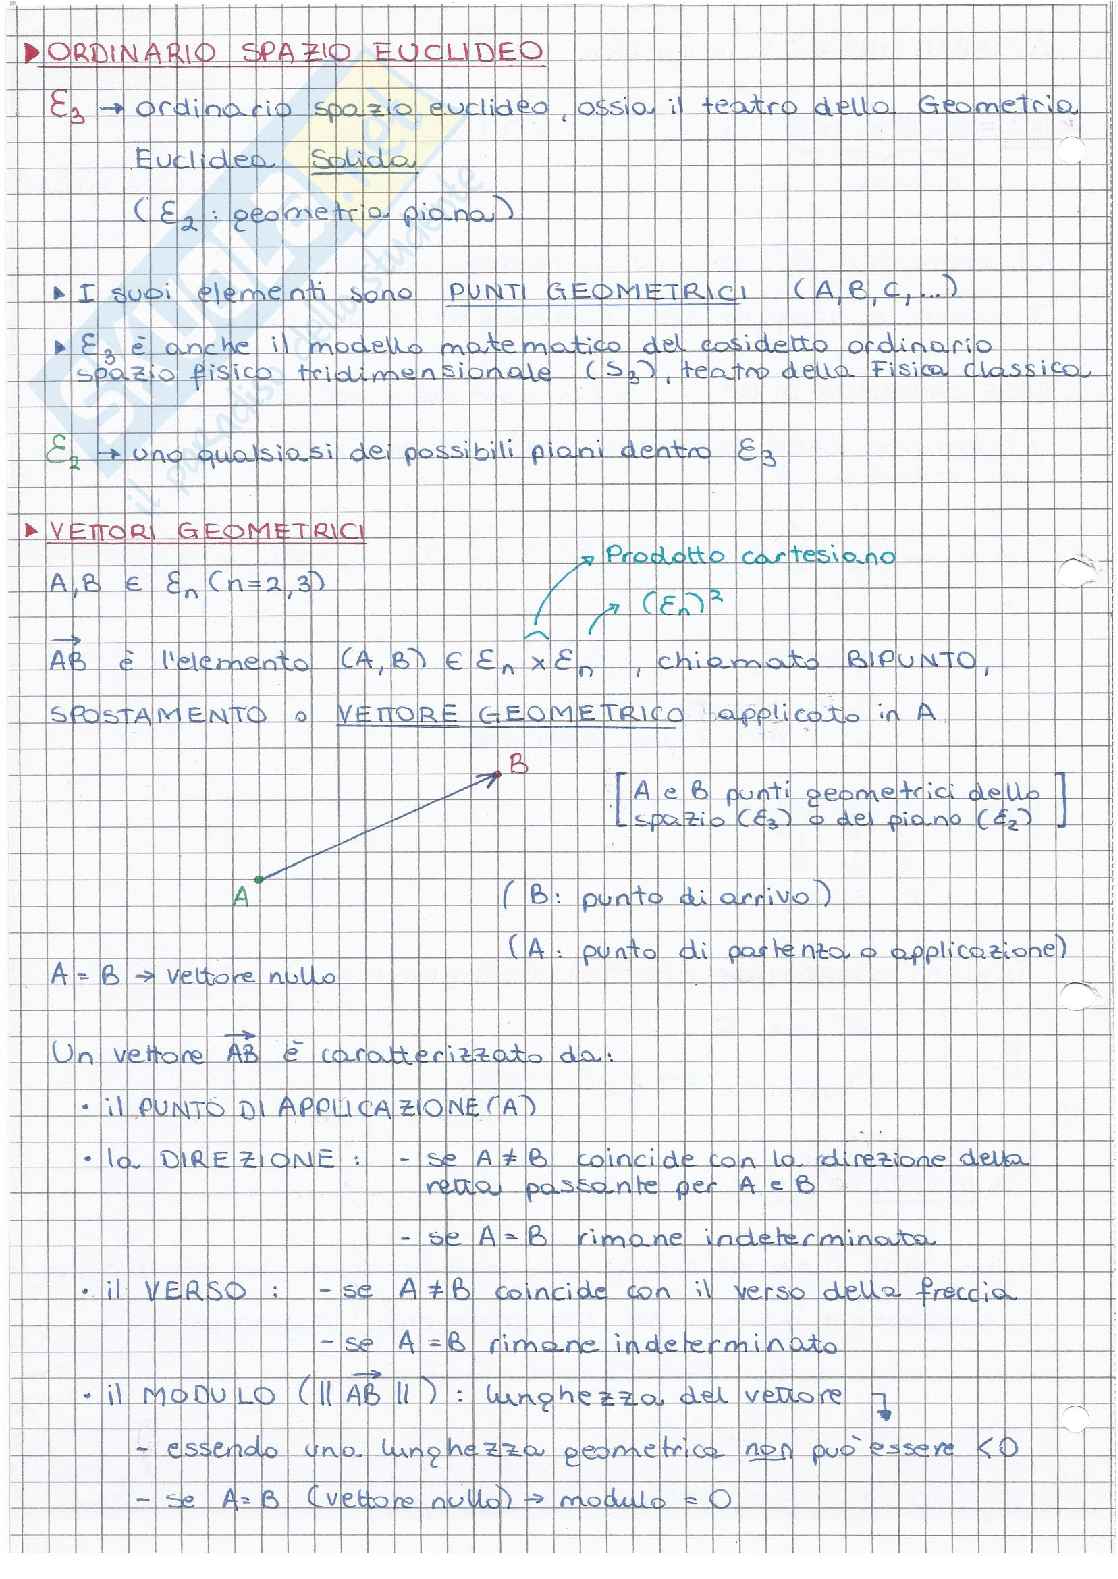 ▶ ORDINARIO SPAZIO EUCLIDEO
ℰ₃ → ordinario spazio euclideo, ossia il teatro della Geometria
Euclidea Solida
(ℰ₂: geometria piana)
▸ I suoi elementi sono PUNTI GEOMETRICI (A,B,C,...)
▸ ℰ₃ è anche il modello matematico del cosidetto ordinario
spazio fisico tridimensionale (S₃), teatro della Fisica classica
ℰ₂ → uno qualsiasi dei possibili piani dentro ℰ₃
▶ VETTORI GEOMETRICI
Prodotto cartesiano
A,B ∈ ℰₙ (n=2,3)
(ℰₙ)²
\overrightarrow{AB} è l'elemento (A,B) ∈ ℰₙ × ℰₙ , chiamato BIPUNTO,
SPOSTAMENTO o VETTORE GEOMETRICO applicato in A
B
[A e B punti geometrici dello
spazio (ℰ₃) o del piano (ℰ₂)]
A
(B: punto di arrivo)
(A: punto di partenza o applicazione)
A = B → vettore nullo
Un vettore \overrightarrow{AB} è caratterizzato da:
• il PUNTO DI APPLICAZIONE (A)
• la DIREZIONE: - se A ≠ B coincide con la direzione della
retta passante per A e B
- se A = B rimane indeterminata
• il VERSO: - se A ≠ B coincide con il verso della freccia
- se A = B rimane indeterminato
• il MODULO (‖\overrightarrow{AB}‖): lunghezza del vettore
- essendo una lunghezza geometrica non può essere <0
- se A=B (vettore nullo) → modulo = 0
SKUOLA.net
il paradiso dello studente